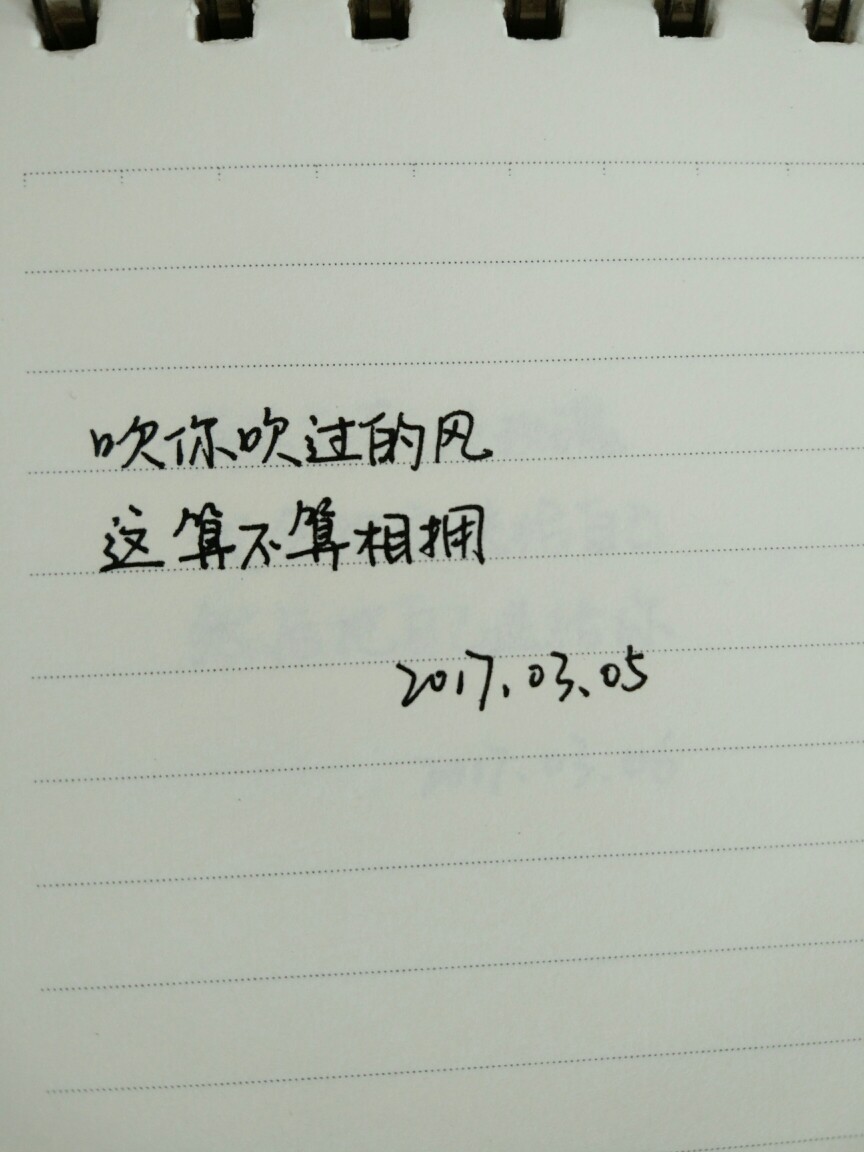 吹你吹过的风
这算不算相拥
2017.03.05